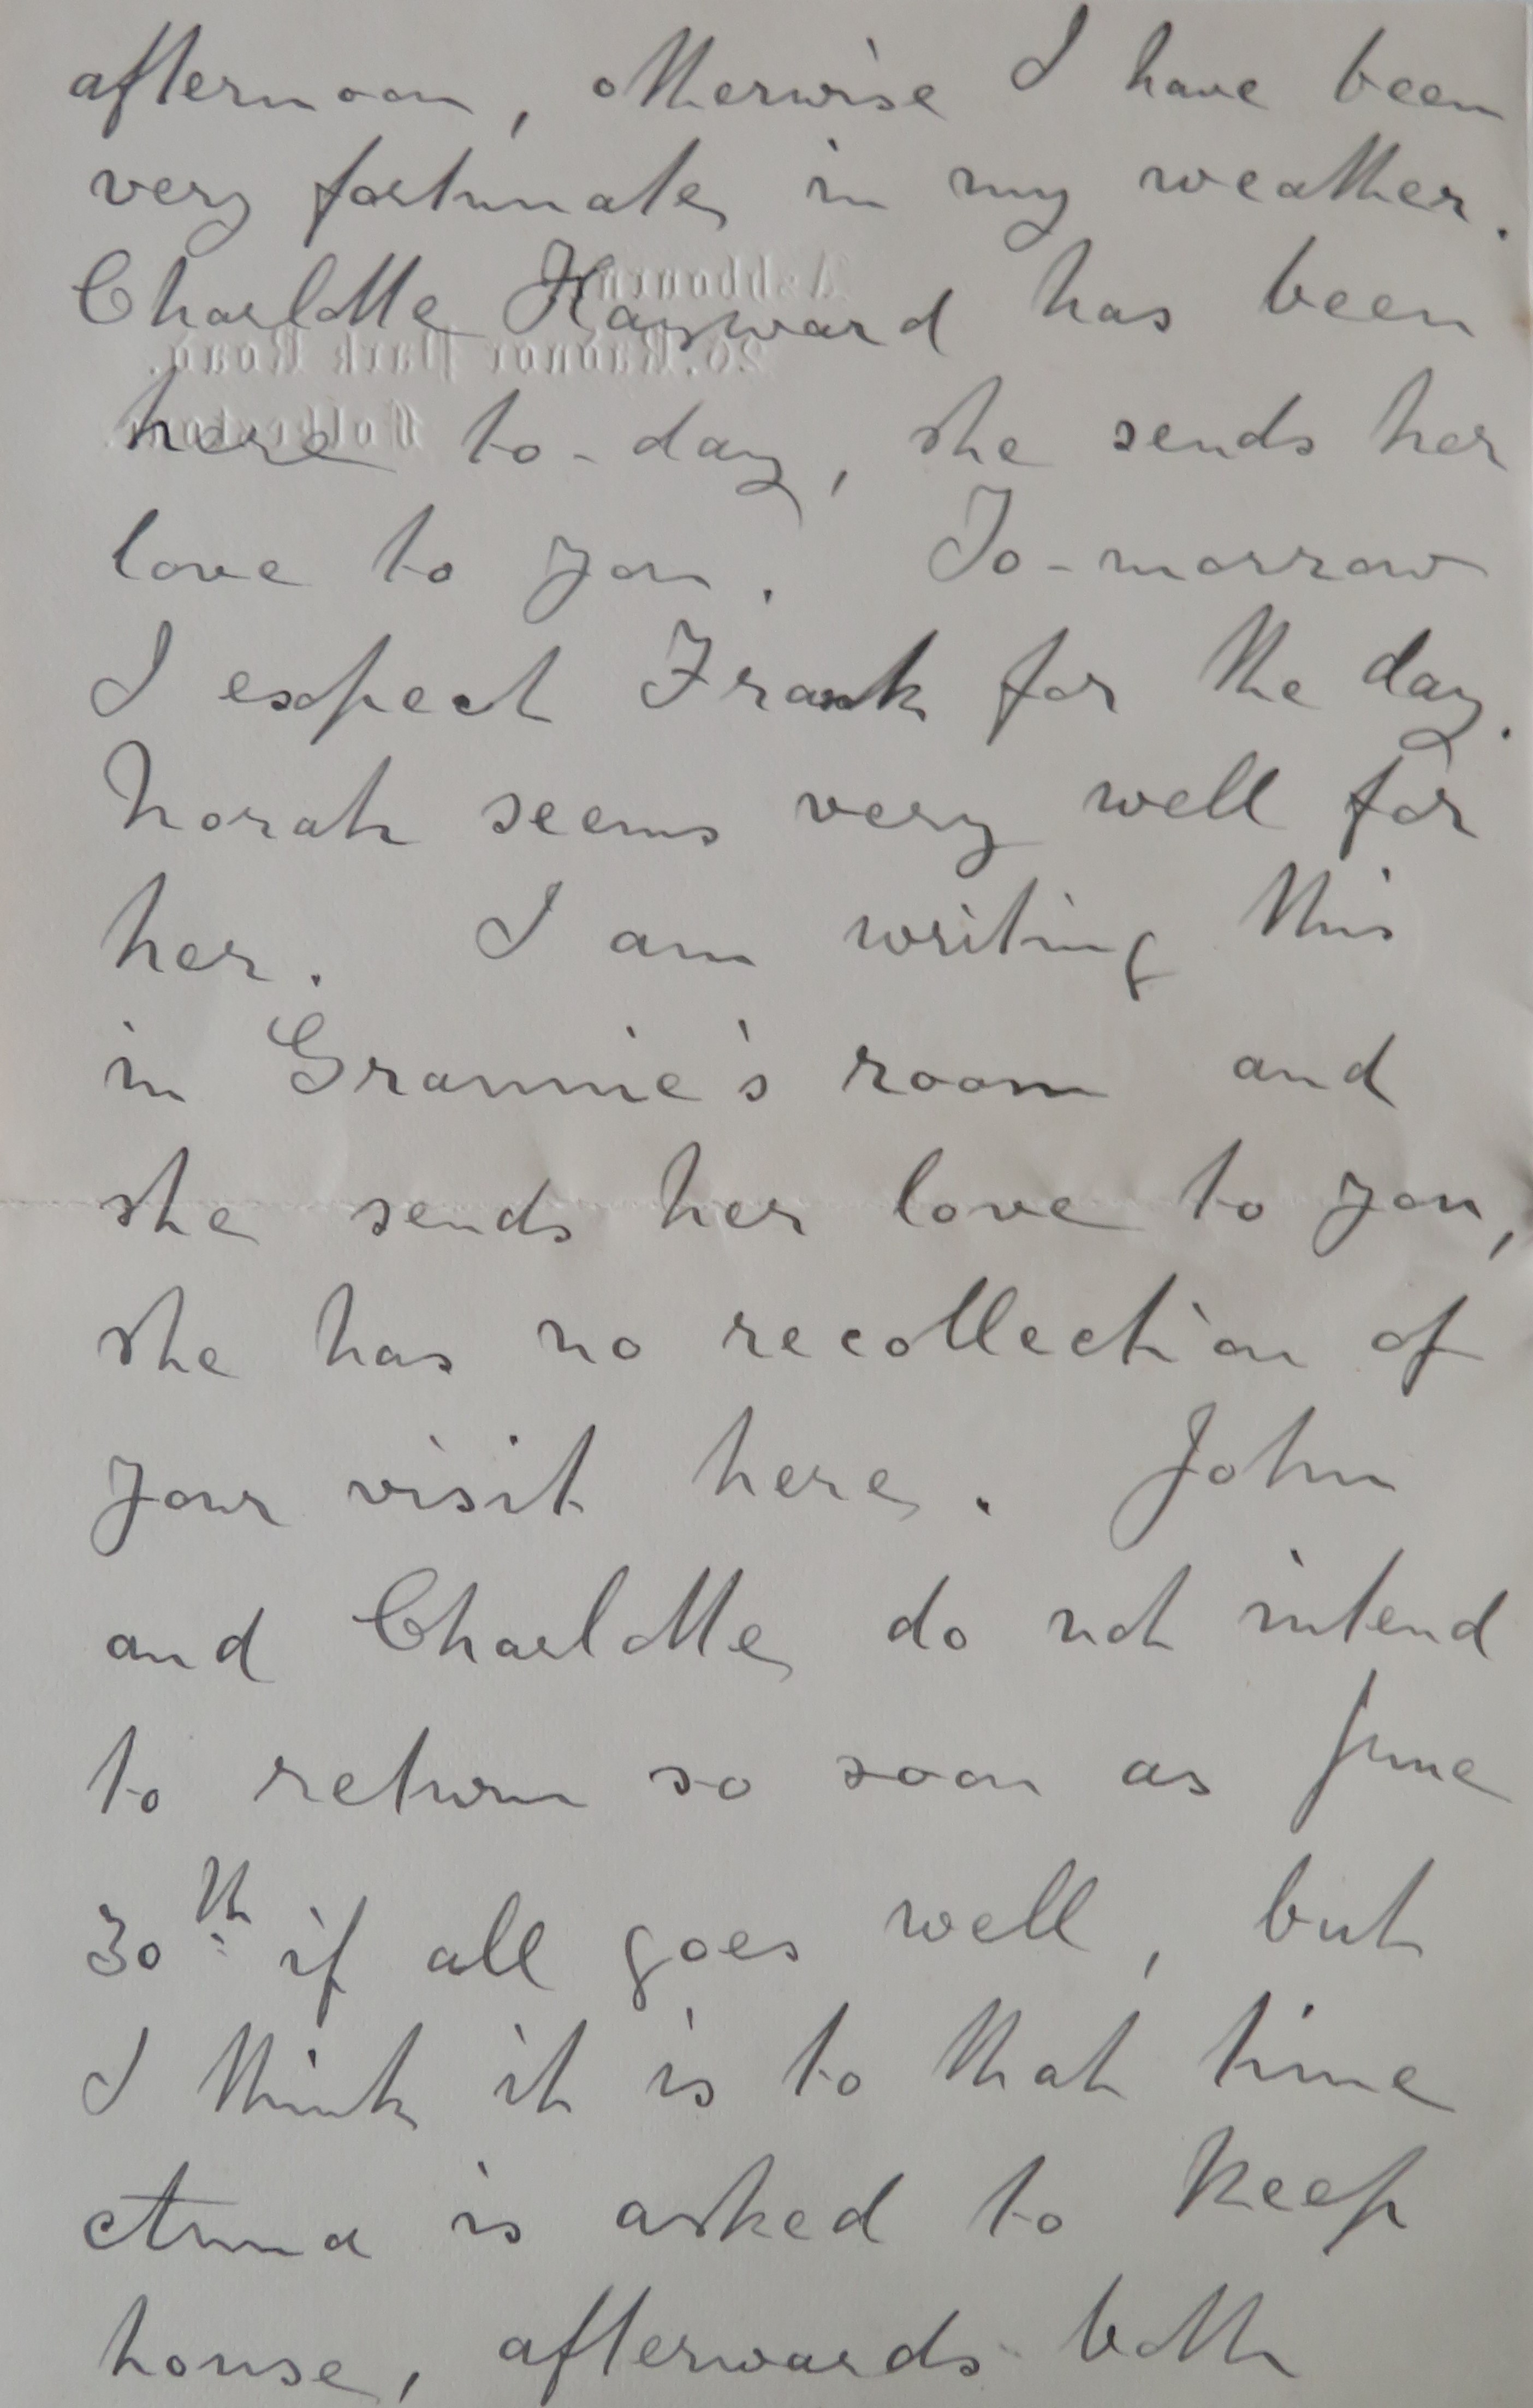 afternoon, otherwise I have been
very fortunate in my weather.
Charlotte Hayward has been
Ashbourne
26, Radnor Park Road,
Folkestone.
here to-day, she sends her
love to you. To-morrow
I expect Frank for the day.
Norah seems very well for
her. I am writing this
in Grannie's room and
she sends her love to you,
she has no recollection of
your visit here. John
and Charlotte do not intend
to return so soon as June
30th if all goes well, but
I think it is to that time
Anna is asked to keep
house, afterwards both